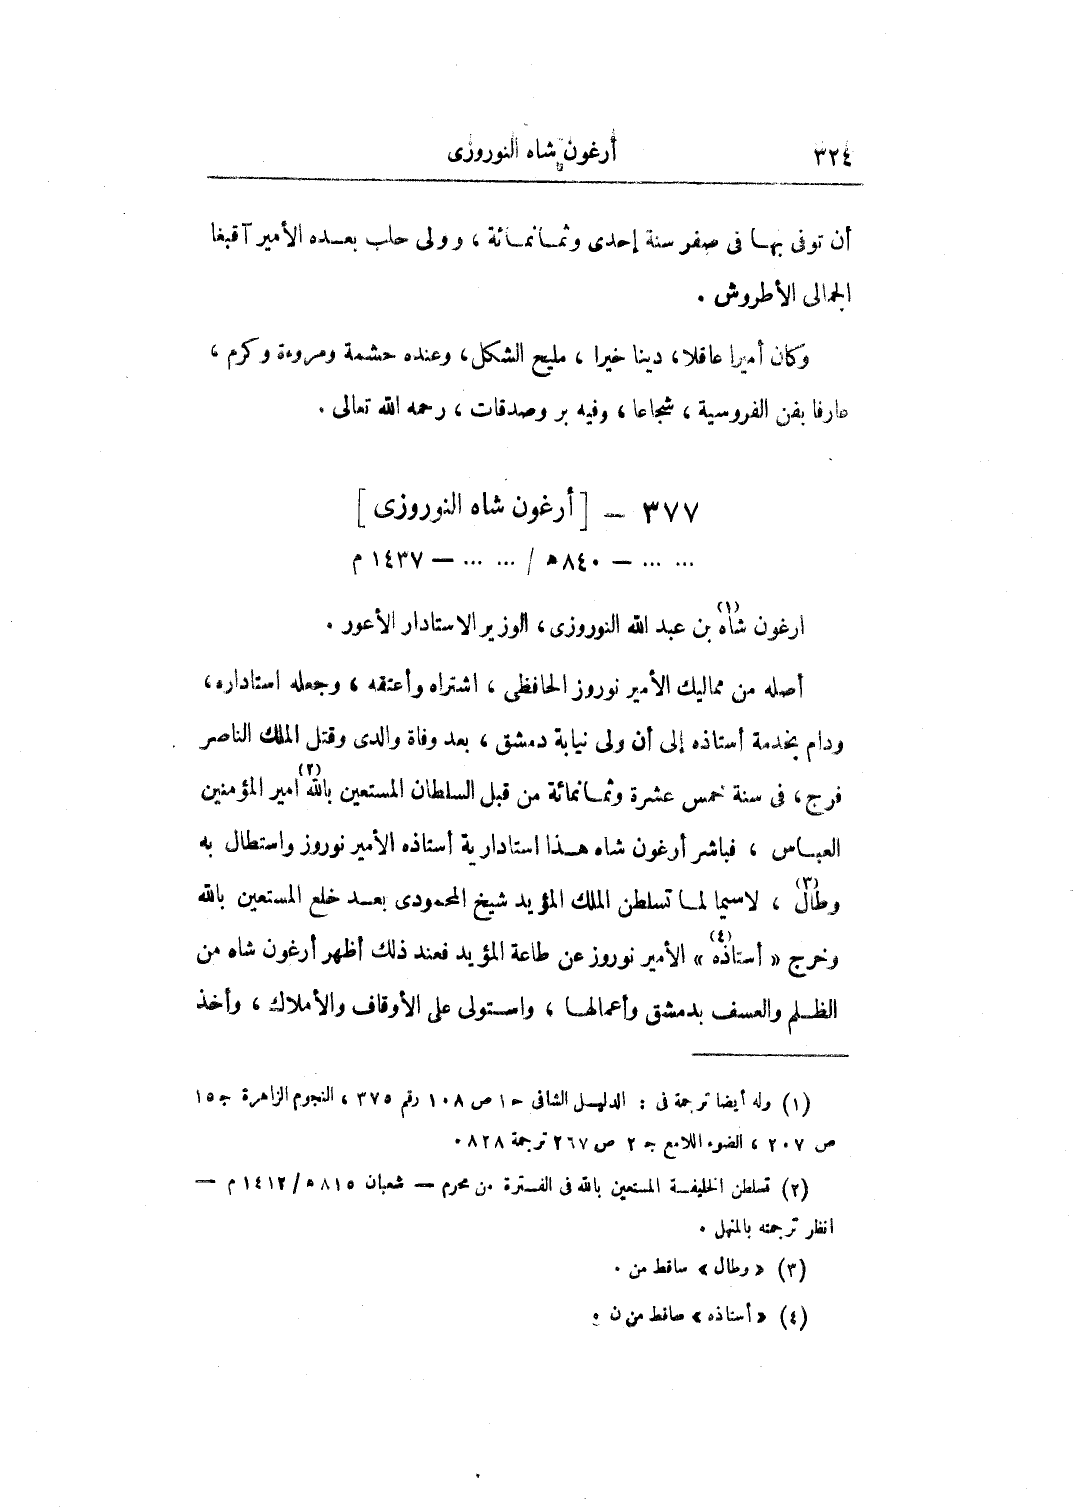 ٣٢٤ أرغون شاه النوروزى
أن توفى بها فى صفر سنة إحدى وثمانمائة ، وولى حلب بعده الأمير آقبغا
الجمالى الأطروش .
وكان أميرا عاقلا ، دينا خيرا ، مليح الشكل ، وعنده حشمة ومروءة وكرم ،
عارفا بفن الفروسية ، شجاعا ، وفيه بر وصدقات ، رحمه الله تعالى .
٣٧٧ – [ أرغون شاه النوروزى ]
... ... – ٨٤٠ﻫ / ... ... – ١٤٣٧ م
ارغون شاه(١) بن عبد الله النوروزى ، الوزير الاستادار الأعور .
أصله من مماليك الأمير نوروز الحافظى ، اشتراه وأعتقه ، وجعله استاداره ،
ودام بخدمة أستاذه إلى أن ولى نيابة دمشق ، بعد وفاة والدى وقتل الملك الناصر
فرج ، فى سنة خمس عشرة وثمانمائة من قبل السلطان المستعين بالله(٢) امير المؤمنين
العباس ، فباشر أرغون شاه هذا استادارية أستاذه الأمير نوروز واستطال به
وطال(٣) ، لاسيما لما تسلطن الملك المؤيد شيخ المحمودى بعد خلع المستعين بالله
وخرج « أستاذه(٤) » الأمير نوروز عن طاعة المؤيد فعند ذلك أظهر أرغون شاه من
الظلم والعسف بدمشق وأعمالها ، واستولى على الأوقاف والأملاك ، وأخذ
(١) وله أيضا ترجمة فى : الدليل الشافى ج١ ص ١٠٨ رقم ٣٧٥ ، النجوم الزاهرة ج١٥
ص ٢٠٧ ، الضوء اللامع ج ٢ ص ٢٦٧ ترجمة ٨٢٨ .
(٢) تسلطن الخليفة المستعين بالله فى الفترة من محرم – شعبان ٨١٥ﻫ/١٤١٢ م –
انظر ترجمته بالمنهل .
(٣) « وطال » ساقط من .
(٤) « أستاذه » ساقط من ن .